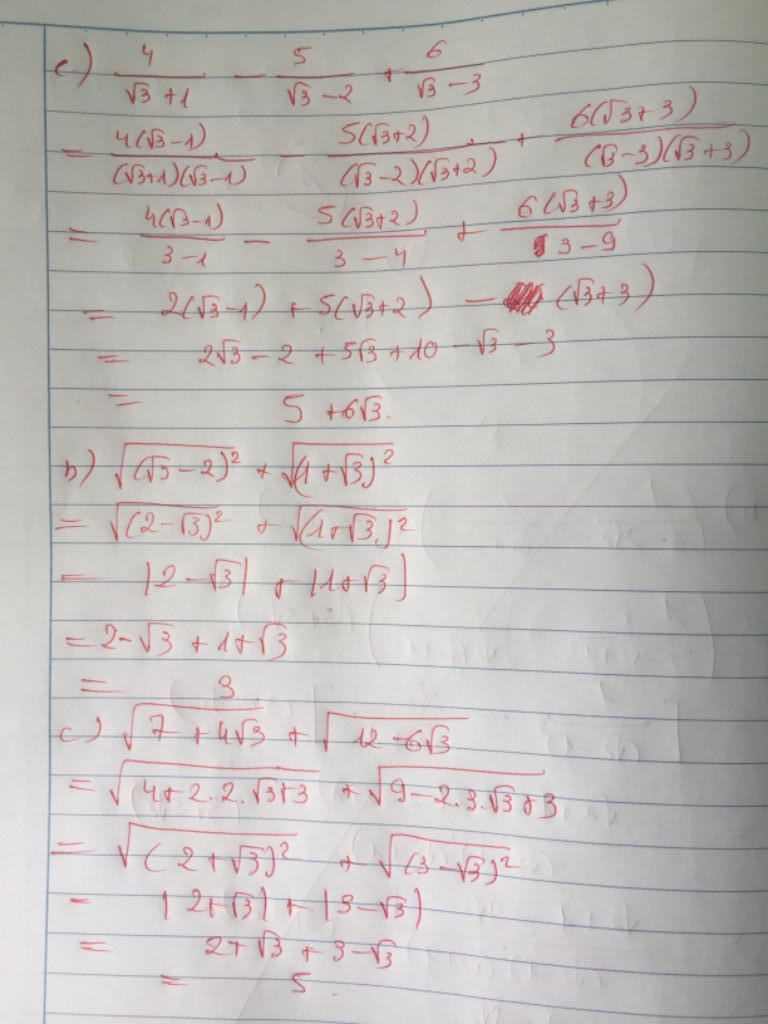 c) 4/(√3+1) - 5/(√3-2) + 6/(√3-3)
= 4(√3-1)/(√3+1)(√3-1) - 5(√3+2)/(√3-2)(√3+2) + 6(√3+3)/(√3-3)(√3+3)
= 4(√3-1)/(3-1) - 5(√3+2)/(3-4) + 6(√3+3)/(3-9)
= 2(√3-1) + 5(√3+2) - (√3+3)
= 2√3-2+5√3+10-√3-3
= 5+6√3.
b) √((√3-2)²) + √((1+√3)²)
= √((2-√3)²) + √((1+√3)²)
= |2-√3| + |1+√3|
= 2-√3+1+√3
= 3.
c) √(7+4√3) + √(12-6√3)
= √(4+2.2.√3+3) + √(9-2.3.√3+3)
= √((2+√3)²) + √((3-√3)²)
= |2+√3| + |3-√3|
= 2+√3+3-√3
= 5.